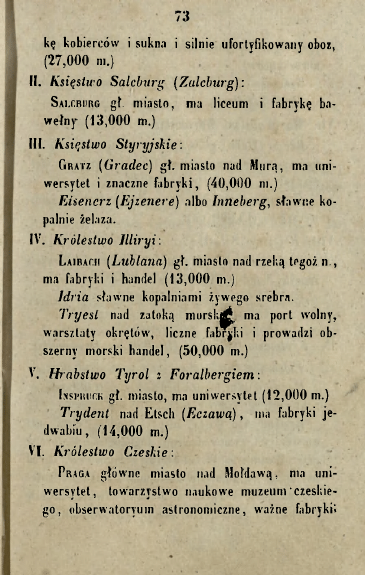 73
kę kobierców i sukna i silnie ufortyfikowany oboz,
(27,000 m.)
II. Księstwo Salcburg (Zalcburg):
SALCBURG gł. miasto, ma liceum i fabrykę ba-
wełny (13,000 m.)
III. Księstwo Styryjskie:
GRATZ (Gradec) gł. miasto nad Murą, ma uni-
wersytet i znaczne fabryki, (40,000 m.)
Eisenerz (Ejzenere) albo Inneberg, sławne ko-
palnie żelaza.
IV. Królestwo Illiryi:
LAIBACH (Lublana) gł. miasto nad rzeką tegoż n.,
ma fabryki i handel (13,000 m.)
Idria sławne kopalniami żywego srebra.
Tryest nad zatoką morską, ma port wolny,
warsztaty okrętów, liczne fabryki i prowadzi ob-
szerny morski handel, (50,000 m.)
V. Hrabstwo Tyrol z Foralbergiem:
INSPRUCK gł. miasto, ma uniwersytet (12,000 m.)
Trydent nad Etsch (Eczawą), ma fabryki je-
dwabiu, (14,000 m.)
VI. Królestwo Czeskie:
PRAGA główne miasto nad Mołdawą, ma uni-
wersytet, towarzystwo naukowe muzeum czeskie-
go, obserwatoryum astronomiczne, ważne fabryki;